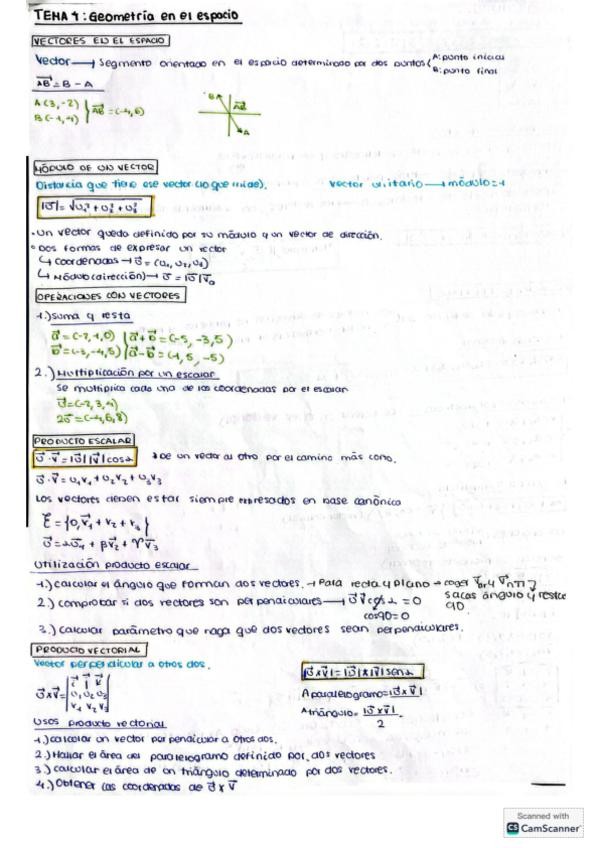 TEMA 1: Geometría en el espacio
VECTORES EN EL ESPACIO
Vector → Segmento orientado en el espacio determinado por dos puntos (A: punto inicial
B: punto final
AB = B - A
A(3,-2)
B(-1,4) AB = (-4,6)
B AB
A
MÓDULO DE UN VECTOR
Distancia que tiene ese vector (lo que mide). vector unitario → módulo = 1
|U| = √U₁² + U₂² + U₃²
• Un vector queda definido por su módulo y un vector de dirección.
• Dos formas de expresar un vector
↳ Coordenadas → U = (U₁, U₂, U₃)
↳ Módulo (dirección) → U = |U| V₀
OPERACIONES CON VECTORES
1.) Suma y resta
a + b = (-5, -3, 5)
a - b = (1, 5, -5)
2.) Multiplicación por un escalar
Se multiplica cada una de las coordenadas por el escalar
U = (-2, 3, 4)
2U = (-4, 6, 8)
PRODUCTO ESCALAR
U · V = |U| |V| cos α → De un vector al otro por el camino más corto.
U · V = U₁V₁ + U₂V₂ + U₃V₃
Los vectores deben estar siempre expresados en base canónica
Utilización producto escalar
1.) calcular el ángulo que forman dos vectores. → Para recta y plano → coger
sacas ángulo y restas
90
2.) comprobar si dos vectores son perpendiculares → U V cos α = 0
cos 90 = 0
3.) calcular parámetro que haga que dos vectores sean perpendiculares.
PRODUCTO VECTORIAL
Vector perpendicular a otros dos. |U x V| = |U| x |V| sen α
U x V = i j k
U₁ U₂ U₃
V₁ V₂ V₃
A paralelogramo = |U x V|
A triángulo = |U x V|
2
Usos producto vectorial
1.) calcular un vector perpendicular a otros dos.
2.) Hallar el área del paralelogramo definido por dos vectores
3.) calcular el área de un triángulo determinado por dos vectores.
4.) Obtener las coordenadas de U x V
Scanned with
CS CamScanner